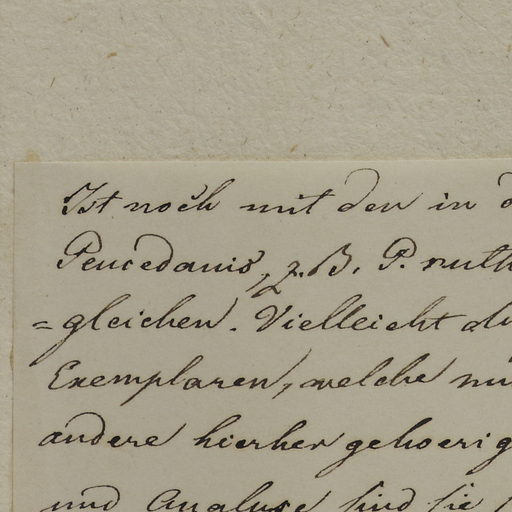 Ist noch mit den in d
Peucedanis, z. B. P. ruth
=gleichen. Vielleicht
Exemplaren, welche
andere hierher gehoerig
und Analyse sind sie